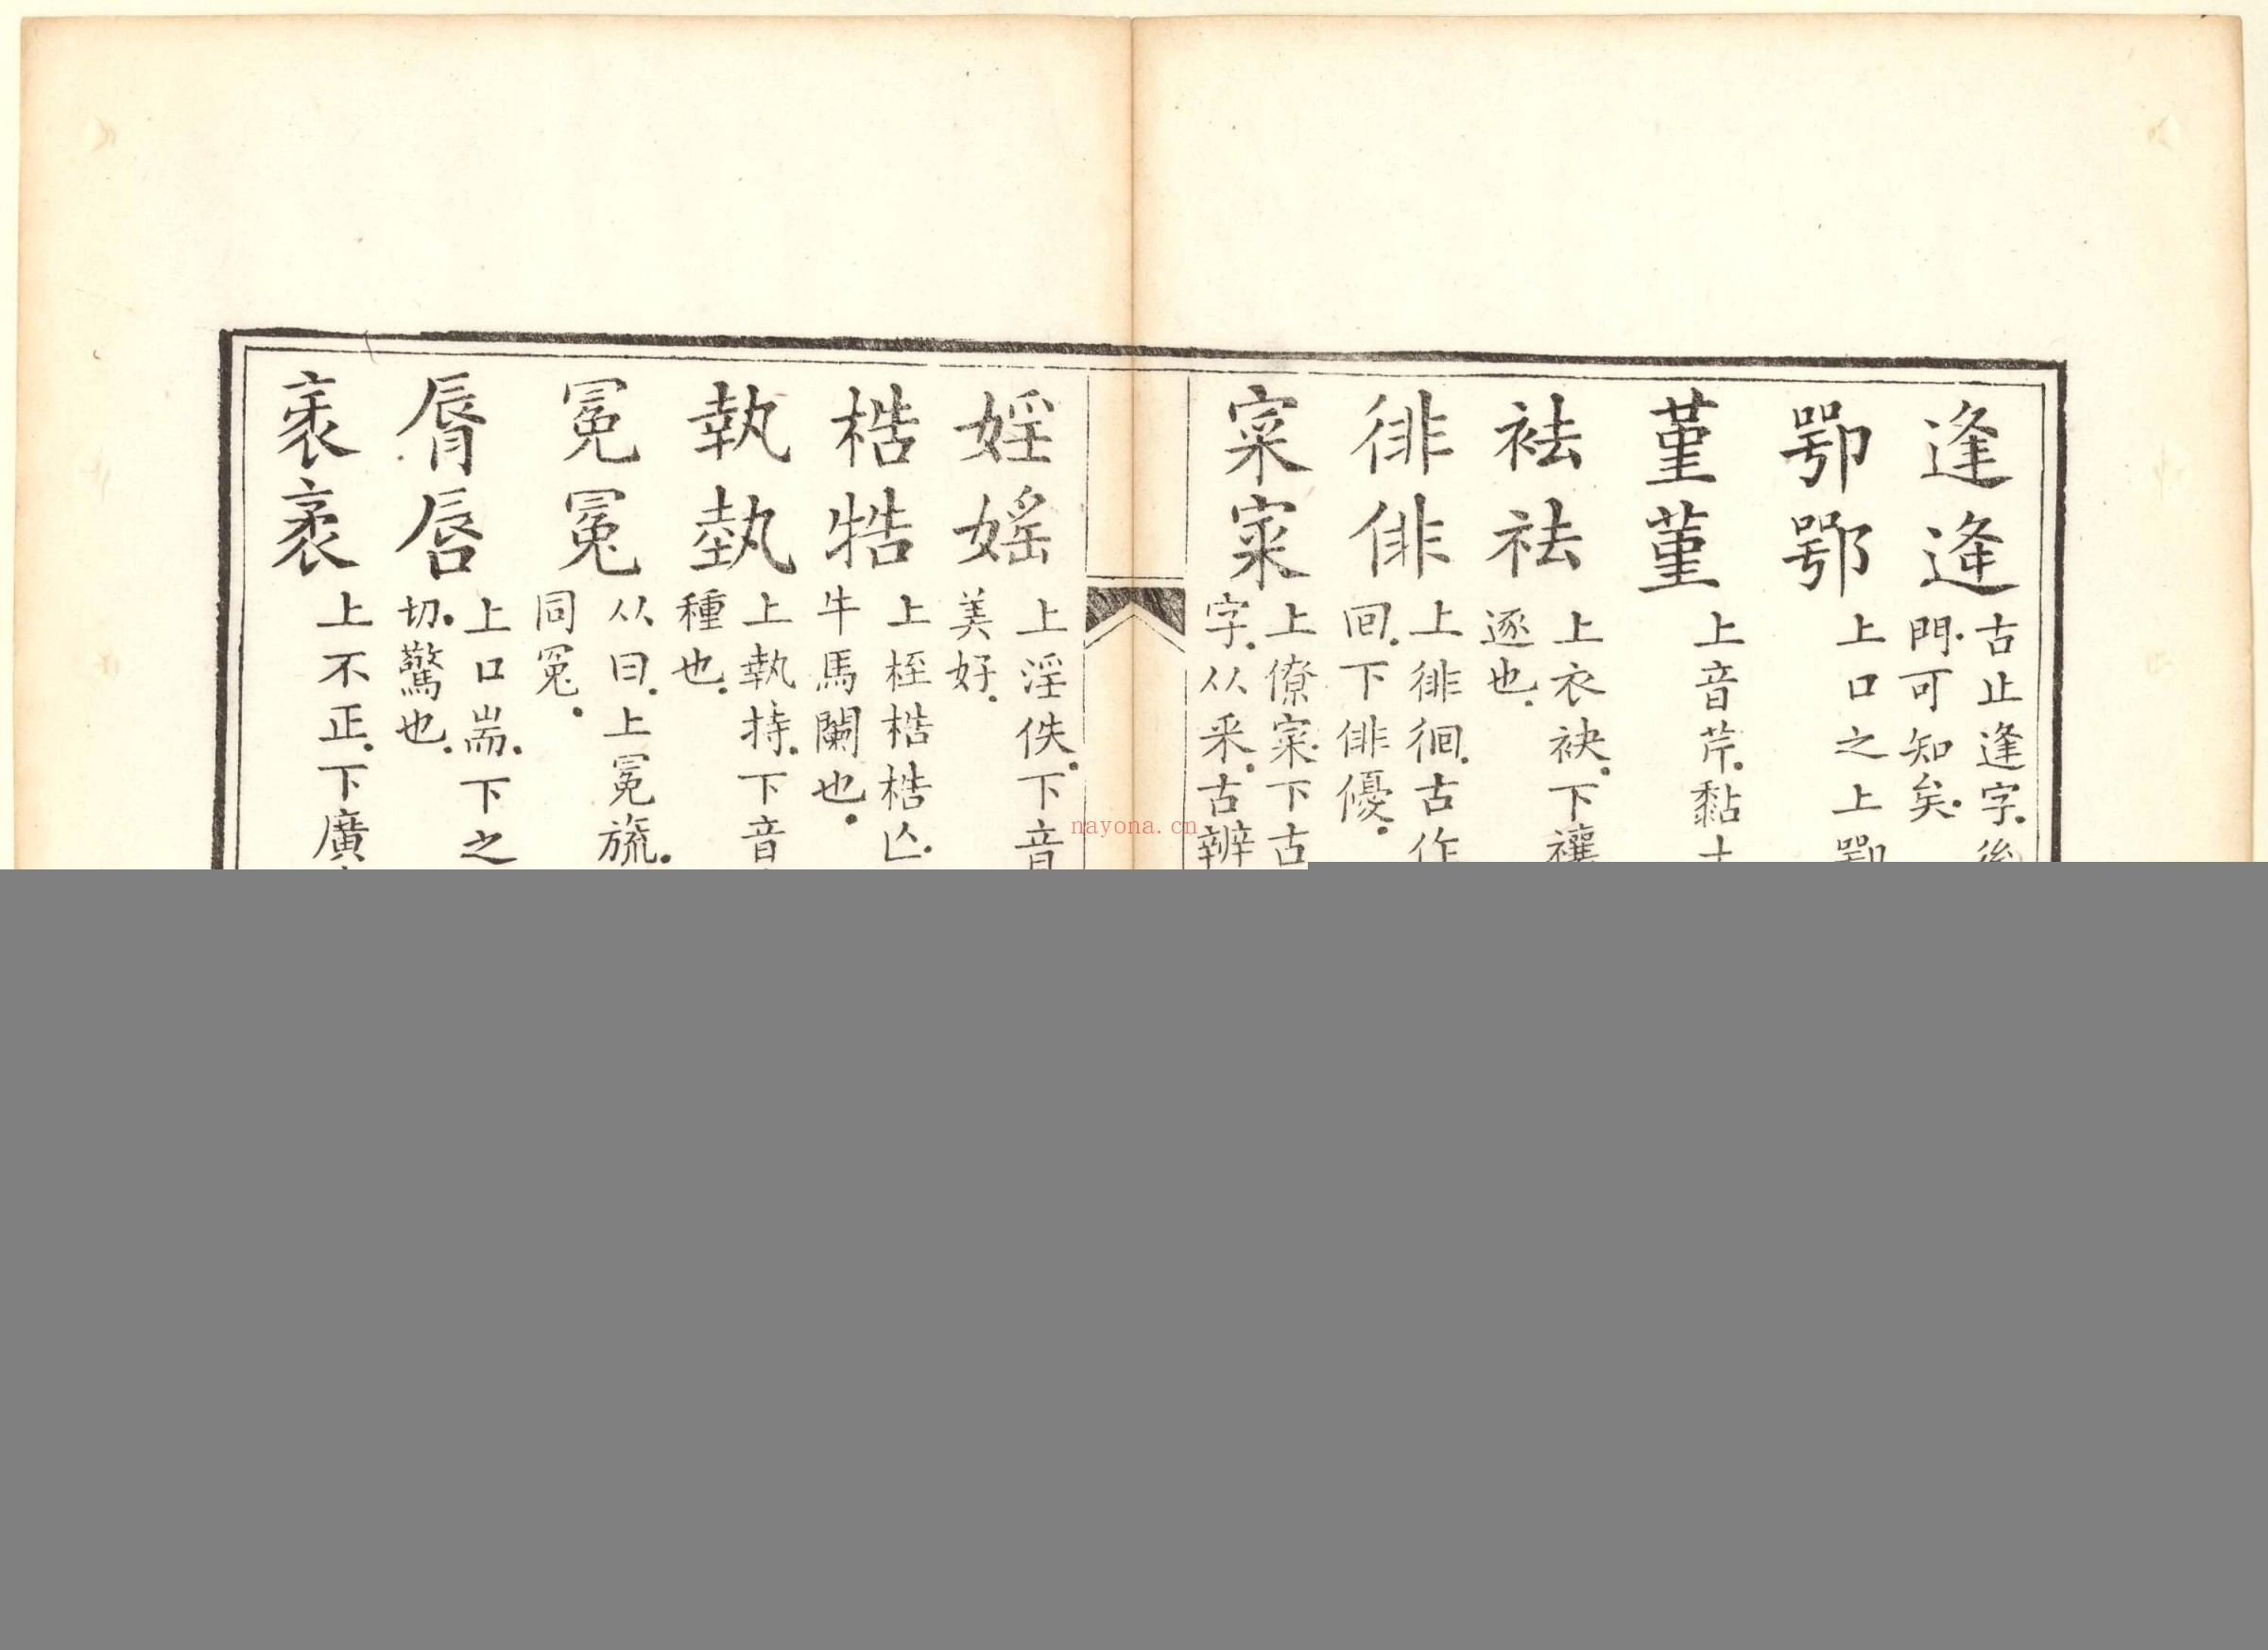 逢逄古止逢字後
門可知矣
卾鄂上口之上卾
菫堇上音芹黏土
袪祛上衣袂下禳
逐也
徘俳上徘徊古作
回下俳優
寀寀上僚寀下古
字从釆古辨
婬媱上淫佚下音
美好
梏牿上桎梏梏亾
牛馬闌也
執埶上執持下音
種也
冕冕从曰上冕旒
同冤
脣唇上口耑下之
切驚也
袤袤上不正下廣
nayona.cn